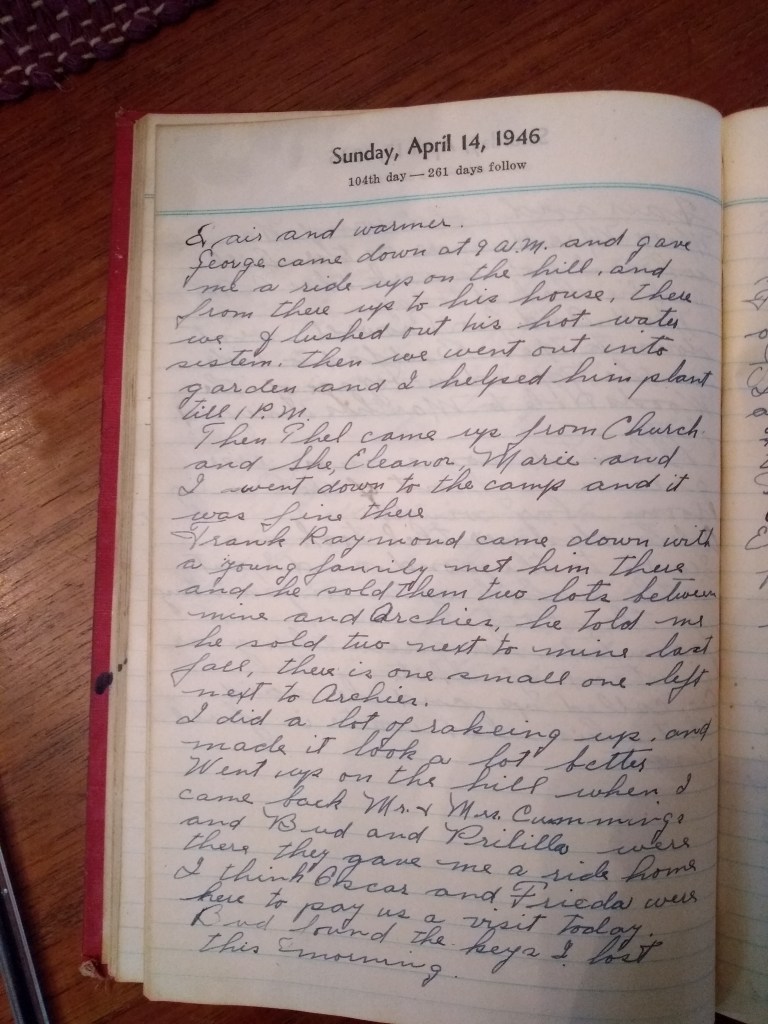 Sunday, April 14, 1946
104th day — 261 days follow
Fair and warmer.
George came down at 9 a.m. and gave
me a ride up on the hill, and
from there up to his house, there
we flushed out his hot water
sistem. then we went out into
garden and I helped him plant
till 1 P.M.
Then Thel came up from Church
and She, Eleanor, Marie and
I went down to the camp and it
was fine there
Frank Raymond came down with
a young family met him there
and he sold them two lots between
mine and Archies, he told me
he sold two next to mine last
fall, there is one small one left
next to Archies.
I did a lot of rakeing up, and
made it look a lot better
Went up on the hill when I
came back Mr. & Mrs. Cummings
and Bud and Prililla were
there they gave me a ride home
I think Oscar and Frieda were
here to pay us a visit today.
Bud found the keys I lost
this morning.